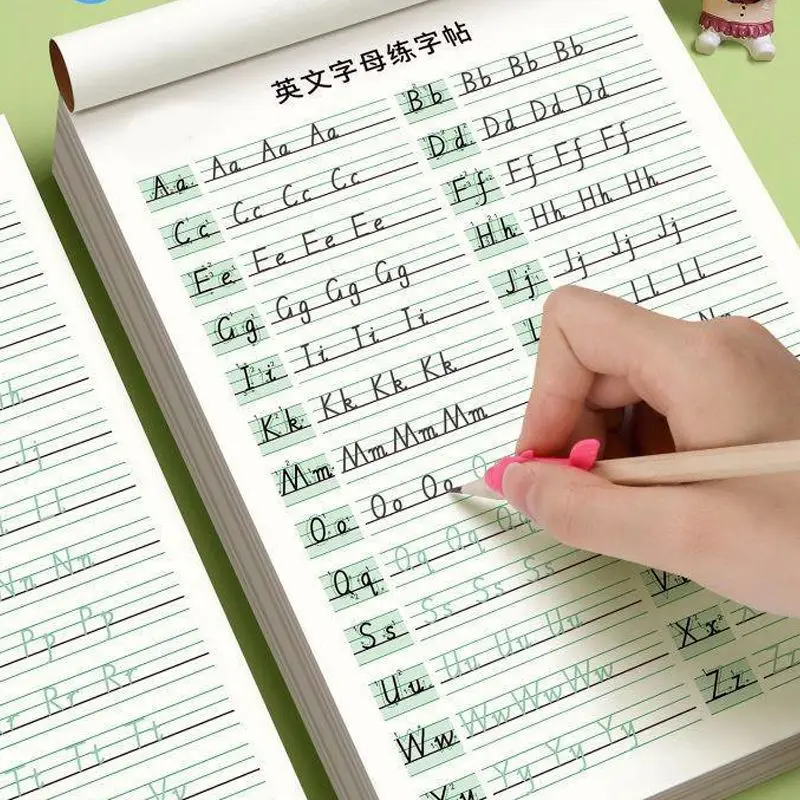 英文字母练字帖
Aa Aa Aa Aa
Bb Bb Bb Bb
Cc Cc Cc Cc
Dd Dd Dd Dd
Ee Ee Ee Ee
Ff Ff Ff Ff
Gg Gg Gg Gg
Hh Hh Hh Hh
Ii Ii Ii Ii
Jj Jj Jj Jj
Kk Kk Kk Kk
Ll Ll
Mm Mm Mm Mm
Oo Oo Oo
Qq Qq Qq Qq
Ss Ss Ss Ss
Uu Uu Uu Uu
Xx
Ww Ww Ww Ww
Zz Zz
Yy Yy Yy Yy
Jj
Ll
Nn Nn
Pp Pp
Rr Rr
Tt Tt
Vv